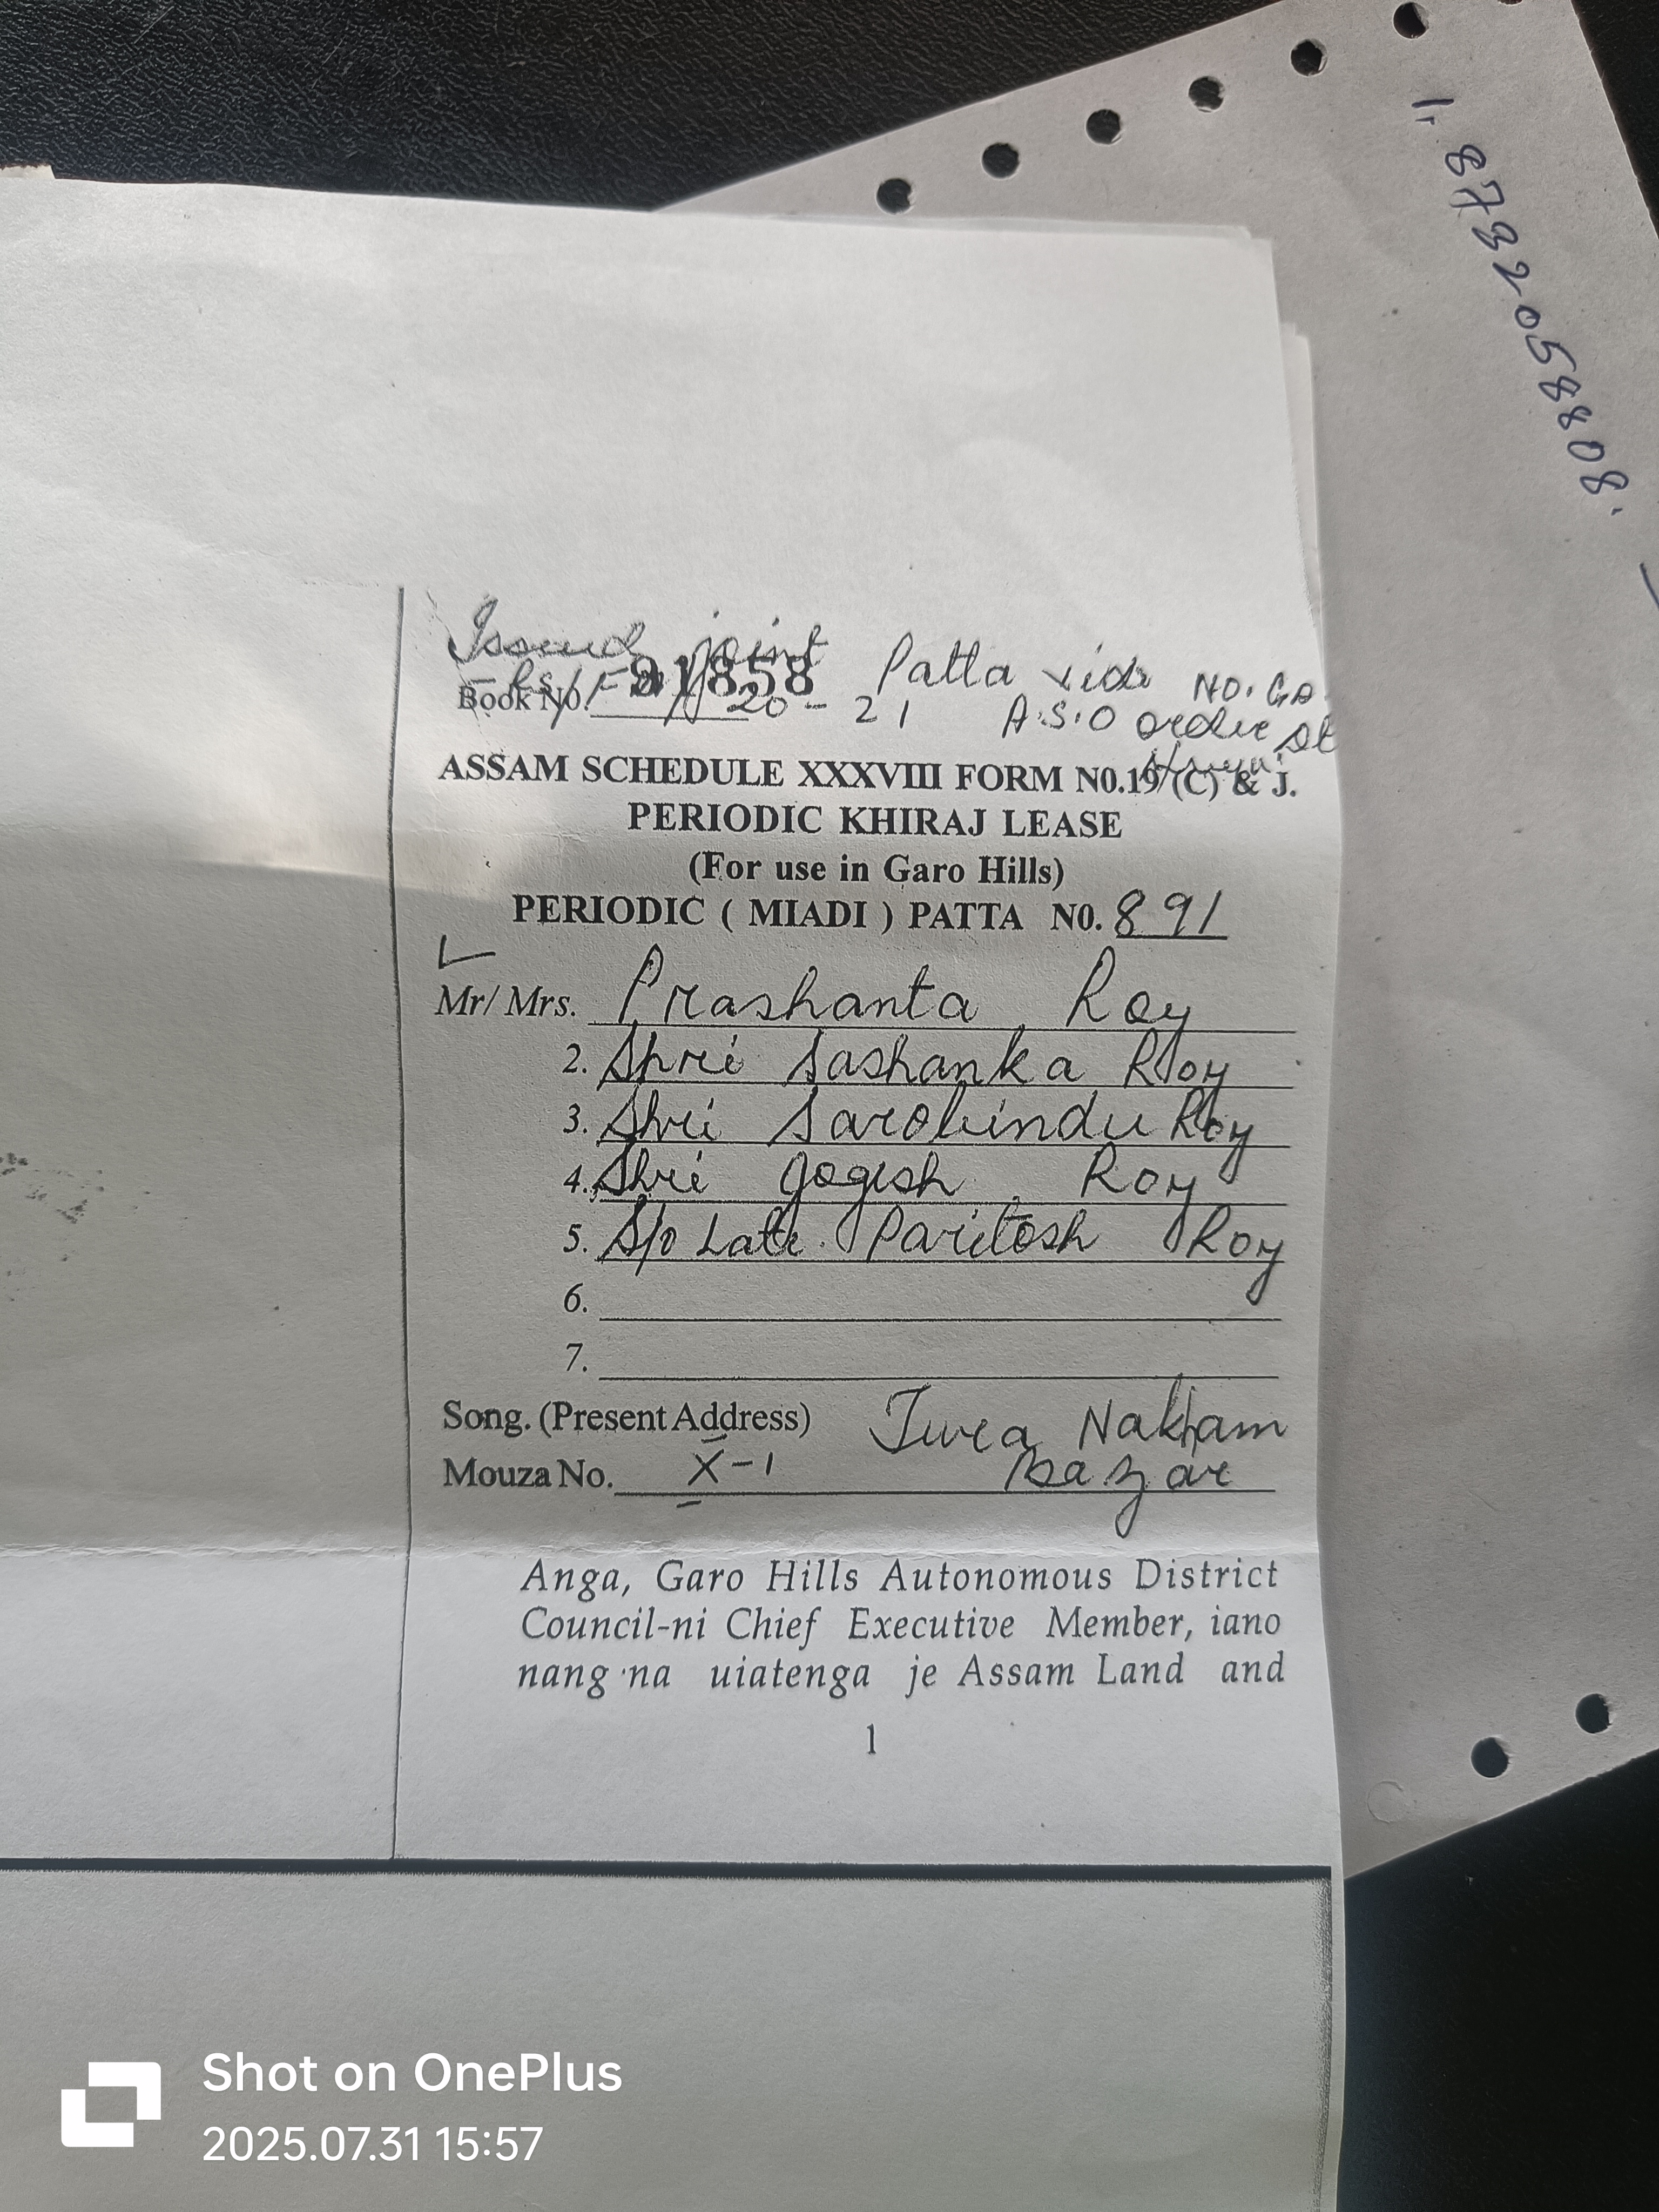 Issued joint Patta vide NO. GA
91858
Book No. 20-21 A.S.O order dt
ASSAM SCHEDULE XXXVIII FORM N0.19 (C) & J.
PERIODIC KHIRAJ LEASE
(For use in Garo Hills)
PERIODIC ( MIADI ) PATTA N0. 891
Mr/ Mrs. Prashanta Roy
2. Shri Sashanka Roy
3. Shri Sarobindu Roy
4. Shri Jogesh Roy
5. S/o Late. Paritosh Roy
6.
7.
Song. (Present Address) Tura Nakham
Mouza No. X-1 Bazar
Anga, Garo Hills Autonomous District
Council-ni Chief Executive Member, iano
nang·na uiatenga je Assam Land and
1
Shot on OnePlus
2025.07.31 15:57